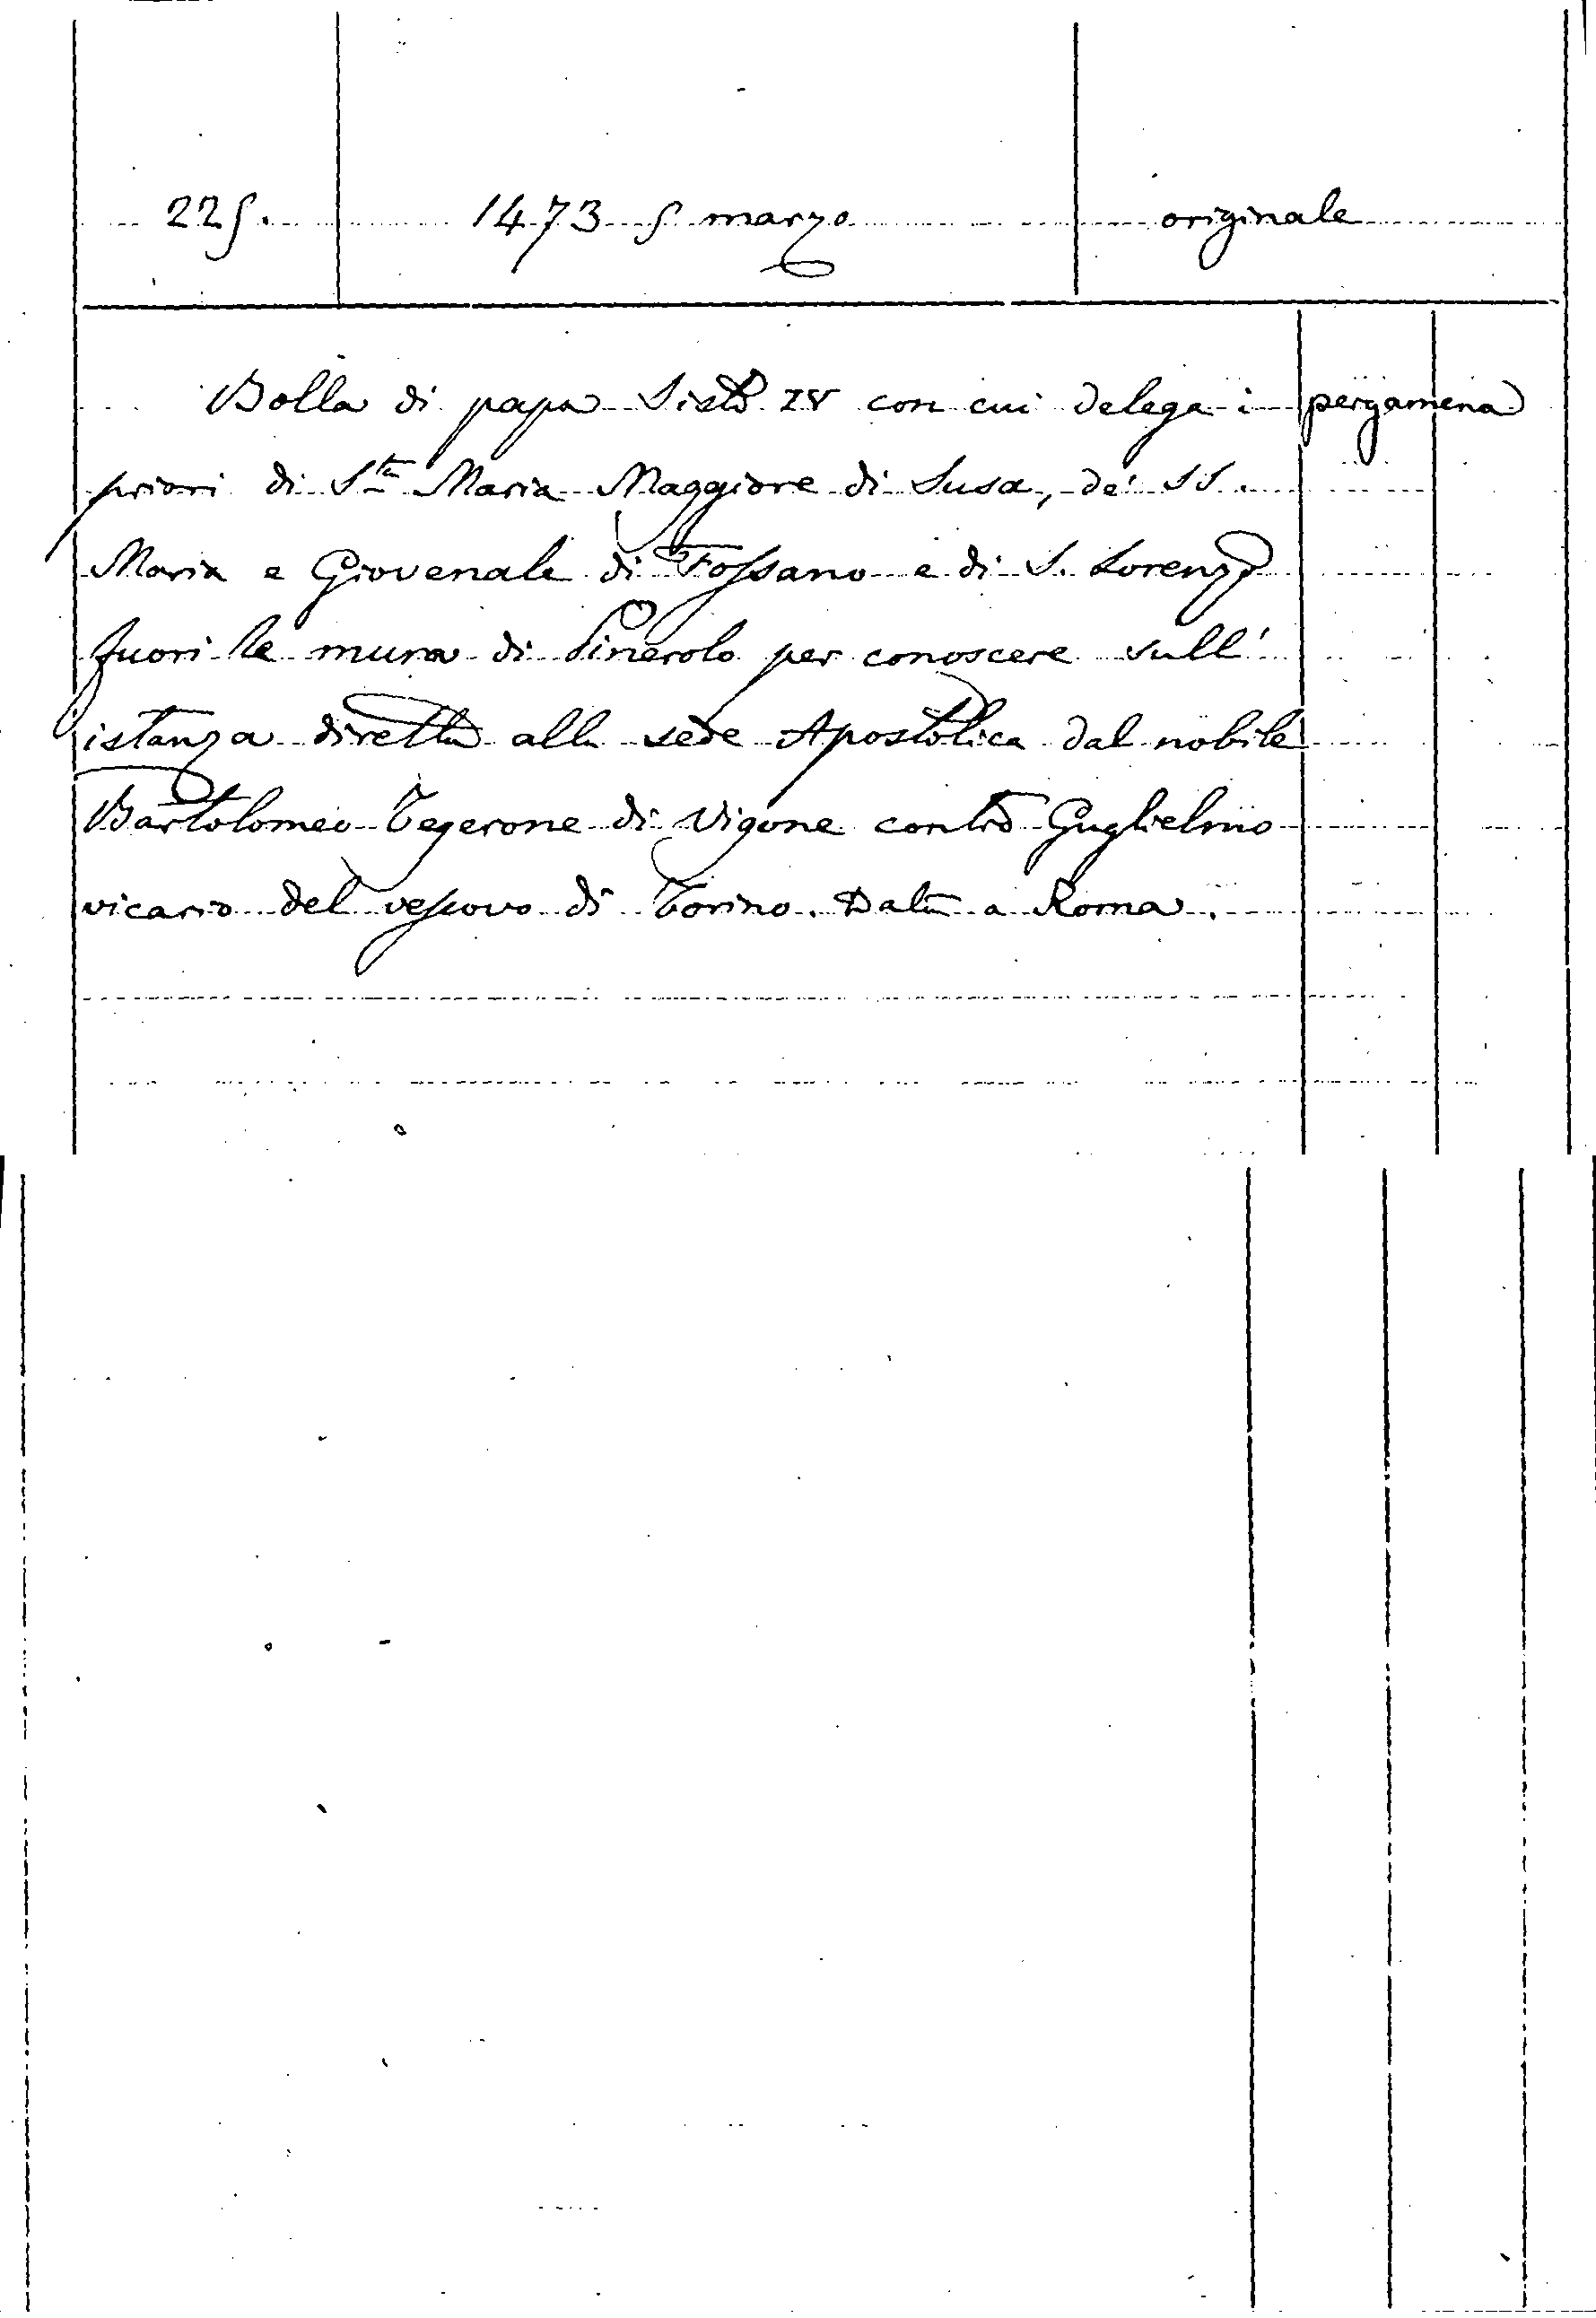 225. 1473 5 marzo originale
Bolla di papa Sisto IV con cui delega i pergamena
priori di S.ta Maria Maggiore di Susa, de' SS.
Maria e Giovenale di Fossano e di S. Lorenzo
fuori le mura di Pinerolo per conoscere sull'
istanza diretta alla sede Apostolica dal nobile
Bartolomeo Tegerone di Vigone contro Guglielmo
vicario del vescovo di Torino. Data a Roma.